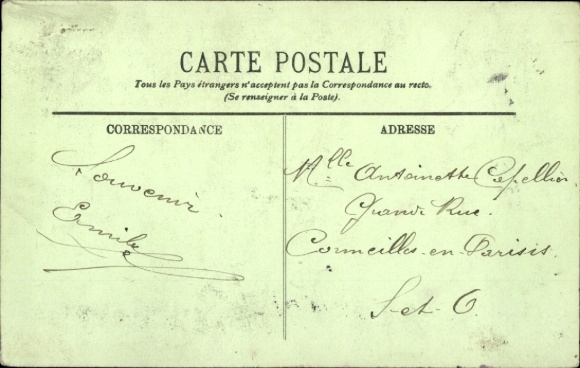 CARTE POSTALE
Tous les Pays étrangers n'acceptent pas la Correspondance au recto.
(Se renseigner à la Poste).
CORRESPONDANCE
Souvenir
Emile
ADRESSE
Mlle Antoinette Capellier
Grande Rue.
Cormeilles-en-Parisis.
S-et-O.